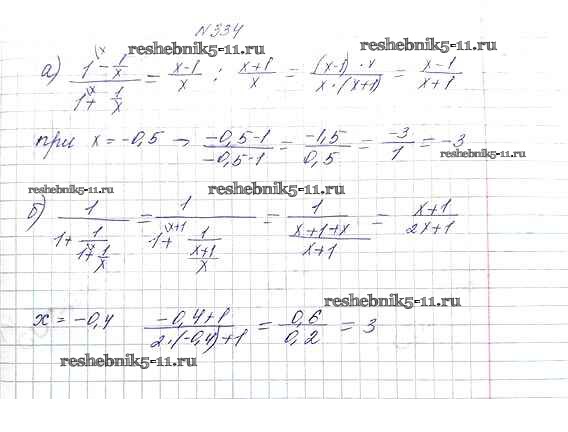 N334
reshebnik5-11.ru
а) (1 - 1/x)/(1 + 1/x) = (x-1)/x : (x+1)/x = ((x-1)·x)/(x·(x+1)) = (x-1)/(x+1)
reshebnik5-11.ru
при x = -0,5 → (-0,5-1)/(-0,5-1) = (-1,5)/(0,5) = (-3)/1 = -3
reshebnik5-11.ru
reshebnik5-11.ru
reshebnik5-11.ru
б) 1/(1+1/(1+1/x)) = 1/(1+1/((x+1)/x)) = 1/((x+1+x)/(x+1)) = (x+1)/(2x+1)
reshebnik5-11.ru
x = -0,4 (-0,4+1)/(2·(-0,4)+1) = 0,6/0,2 = 3
reshebnik5-11.ru